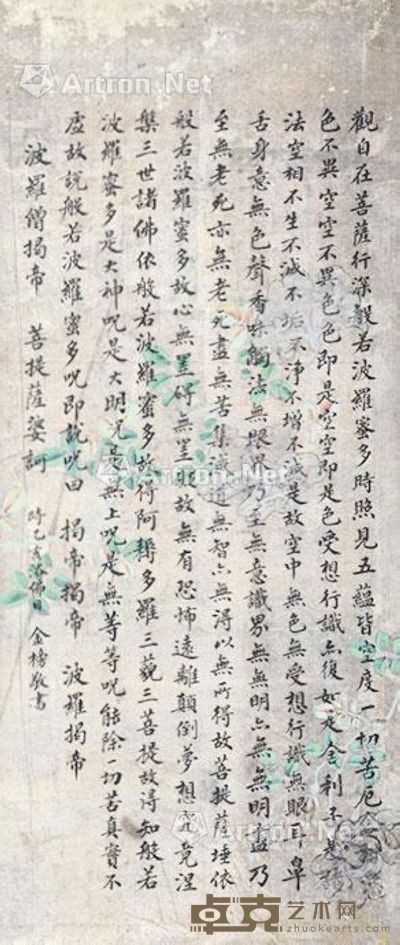 觀自在菩薩行深般若波羅蜜多時照見五蘊皆空度一切苦厄舍利子
色不異空空不異色色即是空空即是色受想行識亦復如是舍利子是諸
法空相不生不滅不垢不淨不增不減是故空中無色無受想行識無眼耳鼻
舌身意無色聲香味觸法無眼界乃至無意識界無無明亦無無明盡乃
至無老死亦無老死盡無苦集滅道無智亦無得以無所得故菩提薩埵依
般若波羅蜜多故心無罣碍無罣碍故無有恐怖遠離顛倒夢想究竟涅
槃三世諸佛依般若波羅蜜多故得阿耨多羅三藐三菩提故得知般若
波羅蜜多是大神呪是大明呪是無上呪是無等等呪能除一切苦真實不
虛故說般若波羅蜜多呪即說呪曰 揭帝揭帝 波羅揭帝
波羅僧揭帝 菩提薩婆訶
時乙亥浴佛日 金榜敬書
Artron.Net
Artron.Net
卓克艺术网
zhuokearts.com